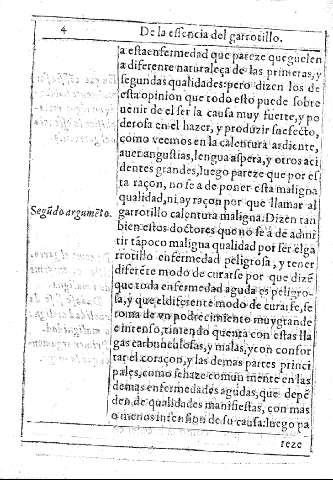 4
De la essencia del garrotillo.
a esta enfermedad que pareze que guelen
a diferente naturaleça de las primeras, y
segundas qualidades: pero dizen los de
esta opinion que todo esto puede sobre
uenir de el ser la causa muy fuerte, y po
derosa en el hazer, y produzir su efecto,
como veemos en la calentura ardiente,
auer angustias, lengua aspera, y otros aci
dentes grandes, luego pareze que por es
ta raçon, no se a de poner esta maligna
qualidad, ni ay raçon por que llamar al
garrotillo calentura maligna. Dizen tan
Segũdo argumẽto.
bien estos doctores que no se a de admi
tir tãpoco maligna qualidad por ser el ga
rrotillo enfermedad peligrosa, y tener
diferẽte modo de curarse por que dizẽ
que toda enfermedad aguda es peligro-
sa, y que el diferente modo de curarse, se
toma de vn podrecimiento muy grande
e intenso, tiniendo quenta con estas lla
gas carbunculosas, y malas, y con confor
tar el coraçon, y las demas partes princi
pales, como se haze comun mente en las
demas enfermedades agudas, que depẽ
den de qualidades manifiestas, con mas
o menos intension de su causa: luego pa
reze